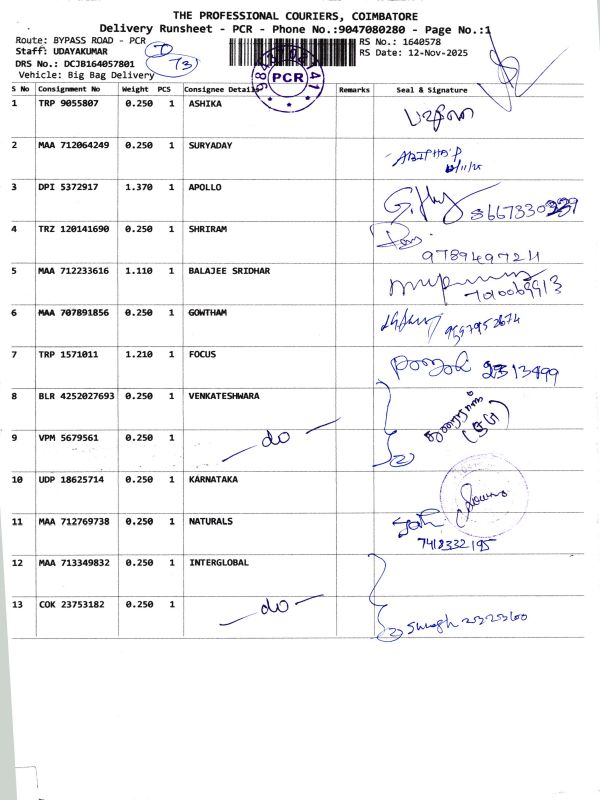 THE PROFESSIONAL COURIERS, COIMBATORE
Delivery Runsheet - PCR - Phone No.:9047080280 - Page No.:1
Route: BYPASS ROAD - PCR
RS No.: 1640578
Staff: UDAYAKUMAR
RS Date: 12-Nov-2025
DRS No.: DCJB164057801
73
Vehicle: Big Bag Delivery
PCR
S No Consignment No Weight PCS Consignee Details Remarks Seal & Signature
1 TRP 9055807 0.250 1 ASHIKA
2 MAA 712064249 0.250 1 SURYADAY
3 DPI 5372917 1.370 1 APOLLO
4 TRZ 120141690 0.250 1 SHRIRAM
9789497211
5 MAA 712233616 1.110 1 BALAJEE SRIDHAR
6 MAA 707891856 0.250 1 GOWTHAM
7 TRP 1571011 1.210 1 FOCUS
2313499
8 BLR 4252027693 0.250 1 VENKATESHWARA
9 VPM 5679561 0.250 1 — do — 2
10 UDP 18625714 0.250 1 KARNATAKA
11 MAA 712769738 0.250 1 NATURALS
7418332195
12 MAA 713349832 0.250 1 INTERGLOBAL
13 COK 23753182 0.250 1 — do — 2